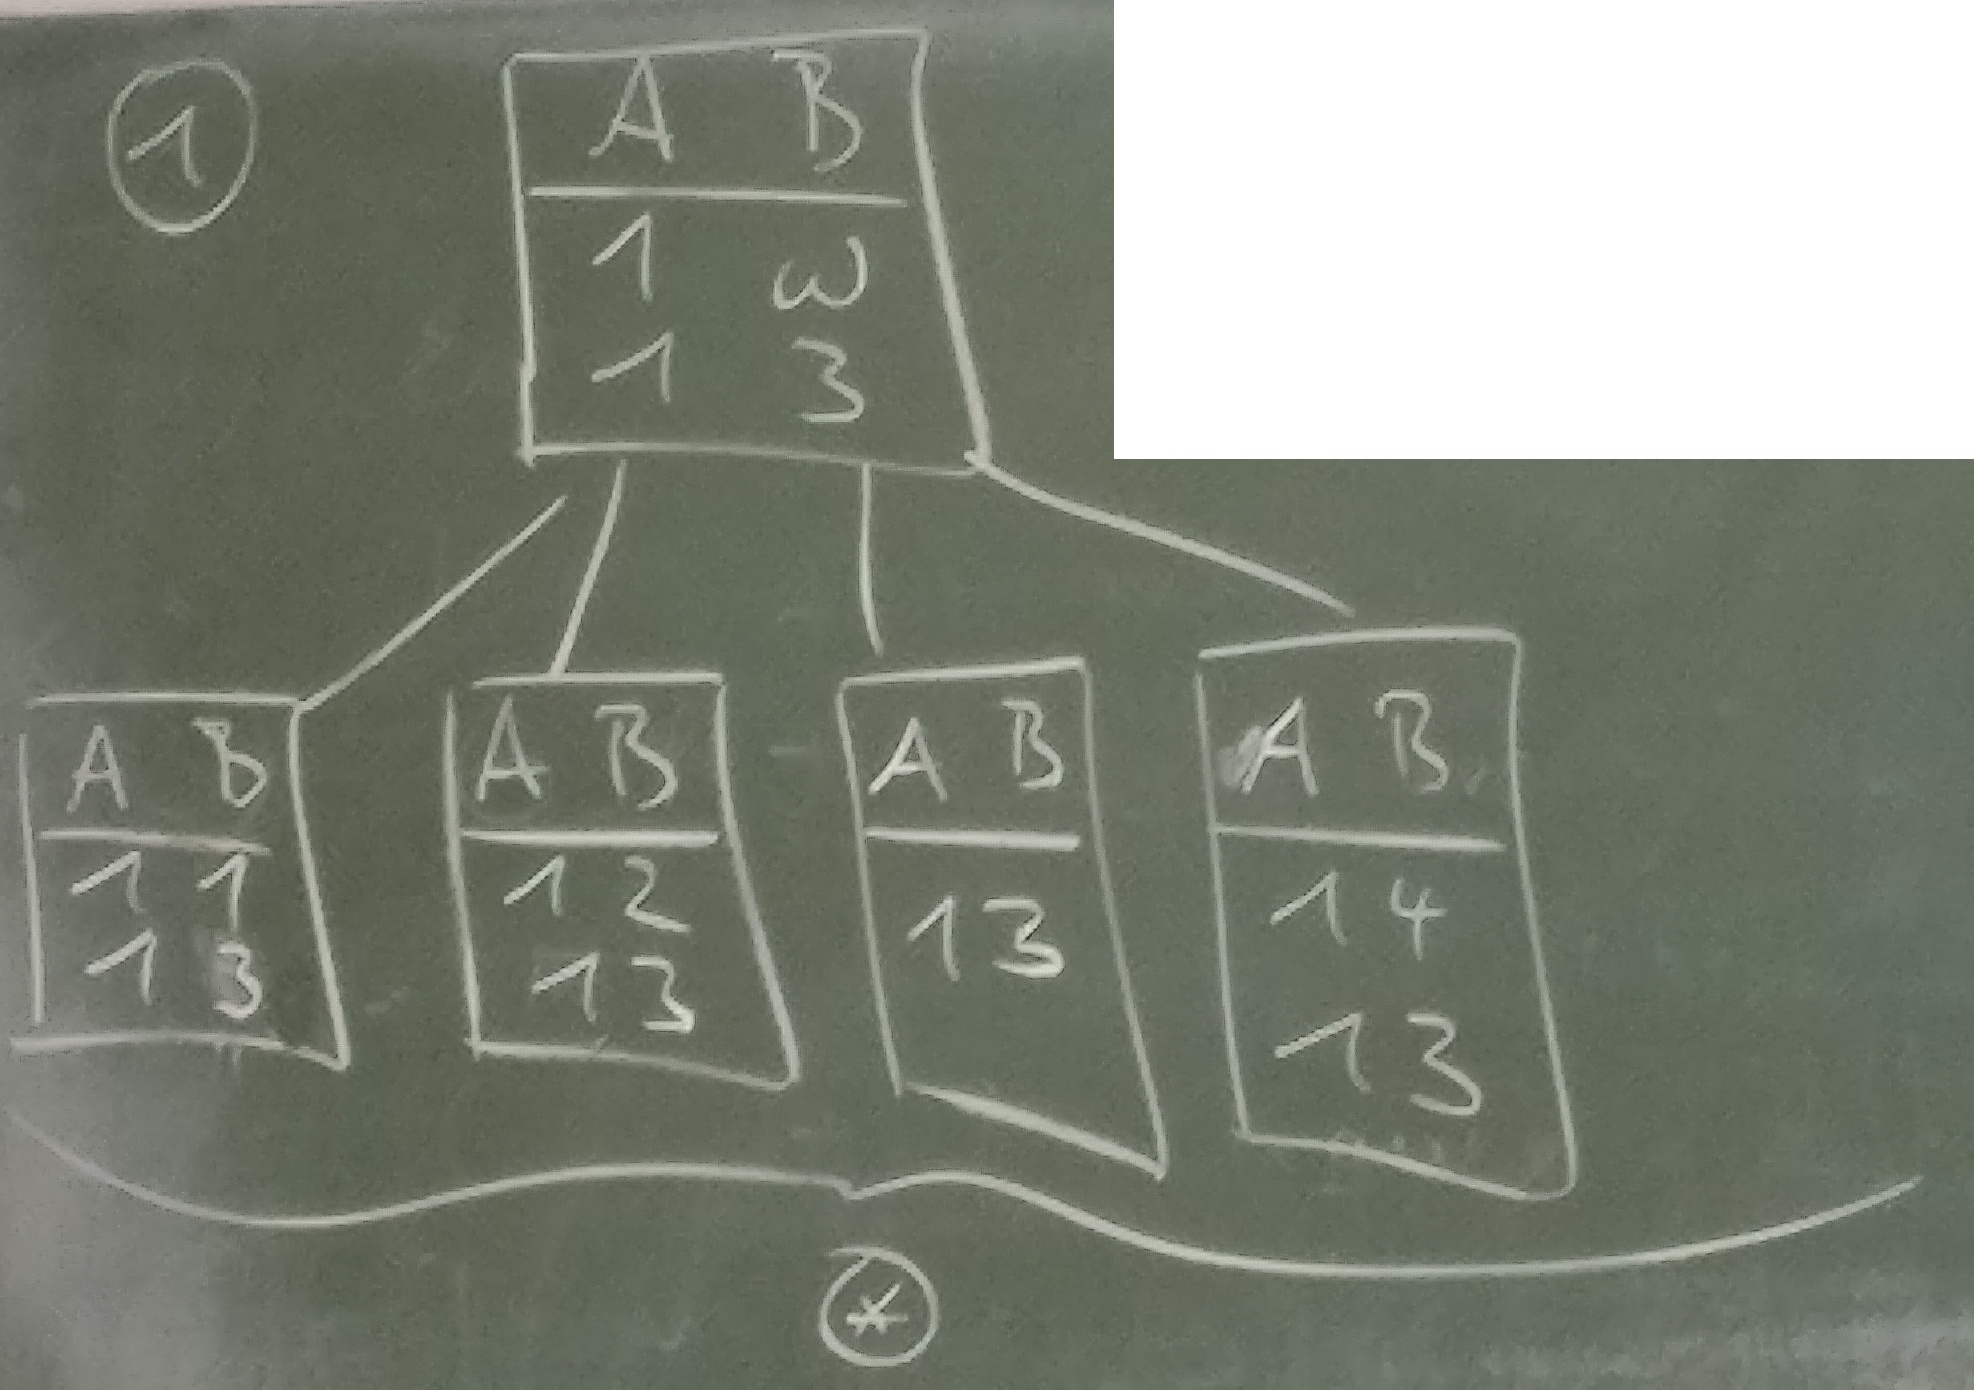 1
A B
1 ω
1 3
A B
1 1
1 3
A B
1 2
1 3
A B
1 3
A B
1 4
1 3
*